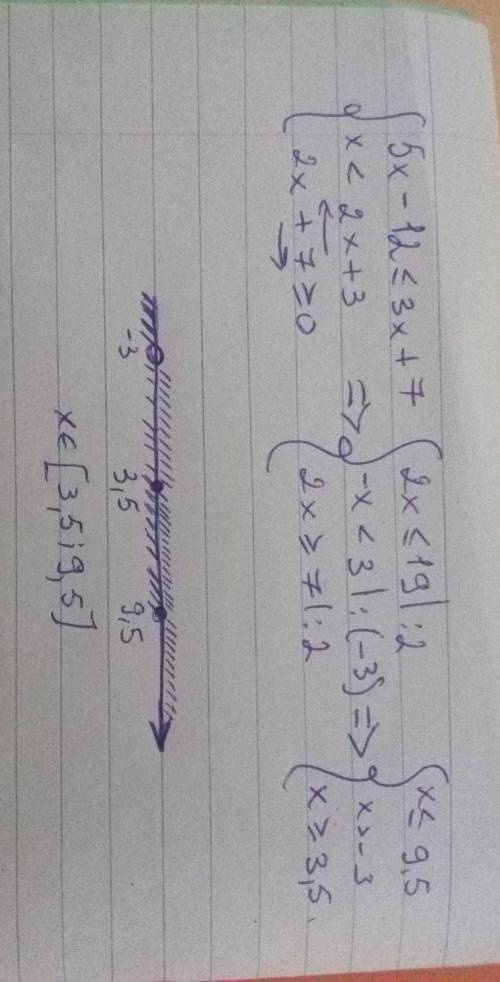 { 5x - 12 ≤ 3x + 7
{ x < 2x + 3
{ 2x + 7 ≥ 0
=> { 2x ≤ 19 | : 2
{ -x < 3 | : (-3)
{ 2x ≥ 7 | : 2
=> { x ≤ 9,5
{ x > -3
{ x ≥ 3,5.
-3 3,5 9,5
x ∈ [3,5 ; 9,5]